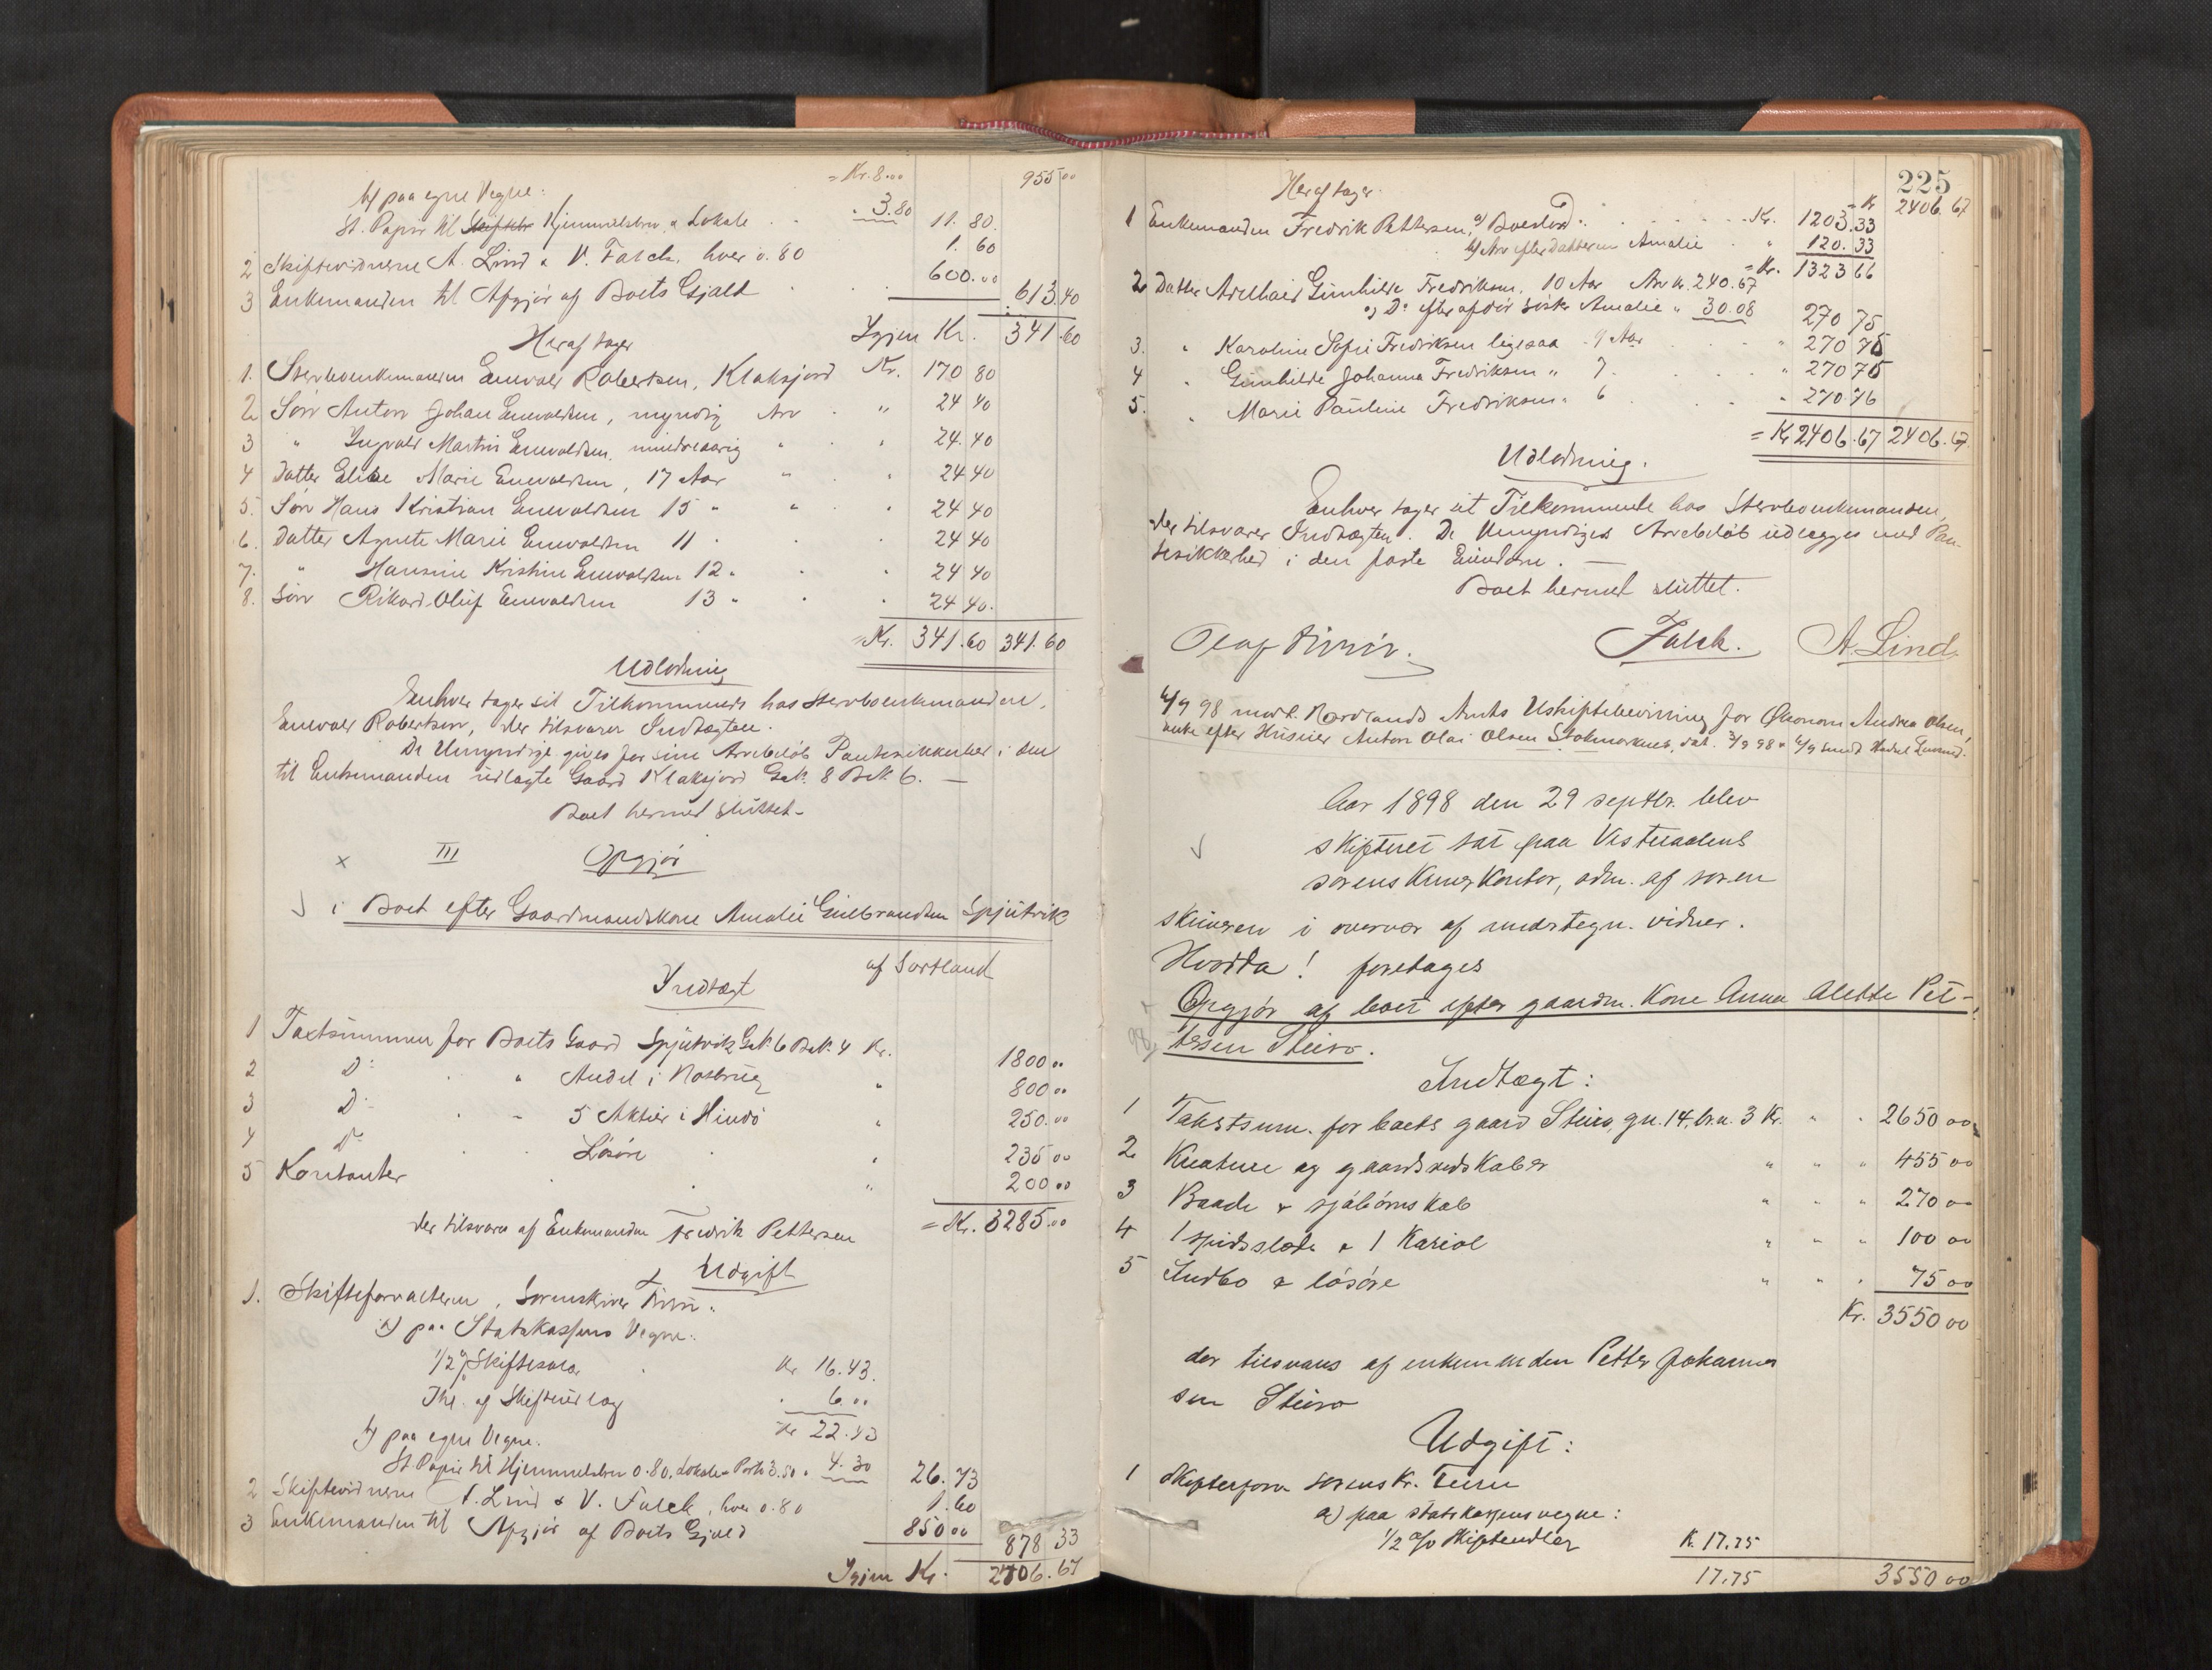 = Kr. 8.00 955 00
b) paa egne Vegne:
St. Papir til Skiftebr Hjemmelsbrev & Lokale . . " 3.80 11. 80.
2 Skiftevidnerne A. Lind & V. Falck, hver o. 80 1. 60
3 Enkemanden til Afgjør af Boets Gjæld . . . 600.00 613.40
Igjen Kr. 341.60
Heraf tager
1. Sterboenkemanden Enevald Robertsen, Klaksjord Kr. 170 80
2 Søn Anton Johan Enevoldsen, myndig Arv . " 24 40
3 " Ingvald Martin Enevoldsen mindreaarig " . " 24. 40
4 Datter Elise Marie Enevoldsen, 17 Aar " . " 24 40
5. Søn Hans Kristian Enevoldsen 15 " " . " 24 40
6. Datter Agnete Marie Enevoldsen 11 " . . 24 40
7. " Hansine Kristine Enevoldsen 12 " . " 24 40
8. Søn Rikard Oluf Enevoldsen 13 " . " 24 40.
= Kr. 341.60 341.60
Udlodning
Enhver tager sit Tilkommende hos Sterboenkemanden,
Enevald Robertsen, der tilsvarer Indtægten.
De Umyndige gives for sine Arvebeløb Pantesikkerhed i den
til Enkemanden udlagte Gaard Klaksjord G.N. 8 B.N. 6. —
Boet hermed sluttet -
x III Opgjør
i Boet efter Gaardmandskone Amalie Gulbrandsen Spjutvik
af Sortland
Indtægt
1 Taxtsummen for Boets Gaard Spjutvik G.N. 6 B.N. 4 Kr. 1800 00
2 Do . " Andel i Notbrug " 800 00
3 Do . - 5 Aktier i Hindö " 250.00
4 Do . . Løsøre . " 235 00
5 Kontanter . . " 200 00
der tilsvares af Enkemanden Fredrik Pettersen = Kr. 3285.00
Udgift
1. Skifteforvalteren, Sorenskriver
a) paa Statskassens Vegne:
1/2 % Skiftesalær . Kr 16.43.
Ihl. af Skifteudlæg . 6.00
Kr 22.43
b) paa egne Vegne.
St. Papir til Hjemmelsbrev 0.80, Lokale & Porto 3.50 " 4.30 26.73
2 Skiftevidnerne A. Lind & V. Falck, hver o. 80 1.60
3 Enkemanden til Afgjør af Boets Gjæld 850 00 878 33
Igjen Kr. 2406.67
225
Heraf tager: Kr 2406.67
1 Enkemanden Fredrik Pettersen, a) Boeslod: . . . . . Kr. 1203.33
b) Arv efter Datteren Amalie . " 120.33
= Kr. 1323 66
2 Datter Adelhaid Gunhilde Fredriksen, 10 Aar Arv kr. 240.67
og Do efter afdød Søster Amalie " 30.08 270 75
3. " Karoline Sofie Fredriksen ligesaa 9 Aar . . . " 270 75
4 " Gunhilde Johanna Fredriksen " 7. . . . " 270 75
5. " Marie Pauline Fredriksen " 6 . . . " 270.76
= Kr 2406.67 2406.67
Udlodning.
Enhver tager sit Tilkommende hos Sterboenkemanden,
der tilsvarer Indtægten. De Umyndiges Arvebeløb udlægges med Pan-
tesikkerhed i den faste Eiendom. —
Boet hermed sluttet.
Falck. A. Lind
6/9 98 modt. Nordlands Amts Uskiftebevilling for Andrea Olsen,
enke efter Huseier Anton Olai Olsen Stokmarknes, dat. 3/9 98 & 6/9
Aar 1898 den 29 septbr. blev
skifteret sat paa Vesteraalens
sorenskriverkontor, adm. af soren
skriveren i overvær af understegn. vidner.
Hvorda! foretages
Opgjør af boet efter gaardm. kone Anna Alette Pet-
tersen Steiro.
Indtægt:
1 Takstsum. for boets gaard Steiro, gn. 14, br.n. 3 Kr. " . 2650 00
2 Kreature og gaardsredskaber " " " 455 00
3 Baade & sjøbørnskab " " " 270 00
4 1 spidsslæde & 1 Kariol " " " 100 00
5 Indbo & løsøre " " " 75 00
Kr. 3550 00
der tilsvares af enkemanden Petter Johanne
sen Steiro
Udgift:
1 Skifteforv. sorenskr.
a) paa statskassens vegne:
1/2 % K. 17.75
17.75 3550 00